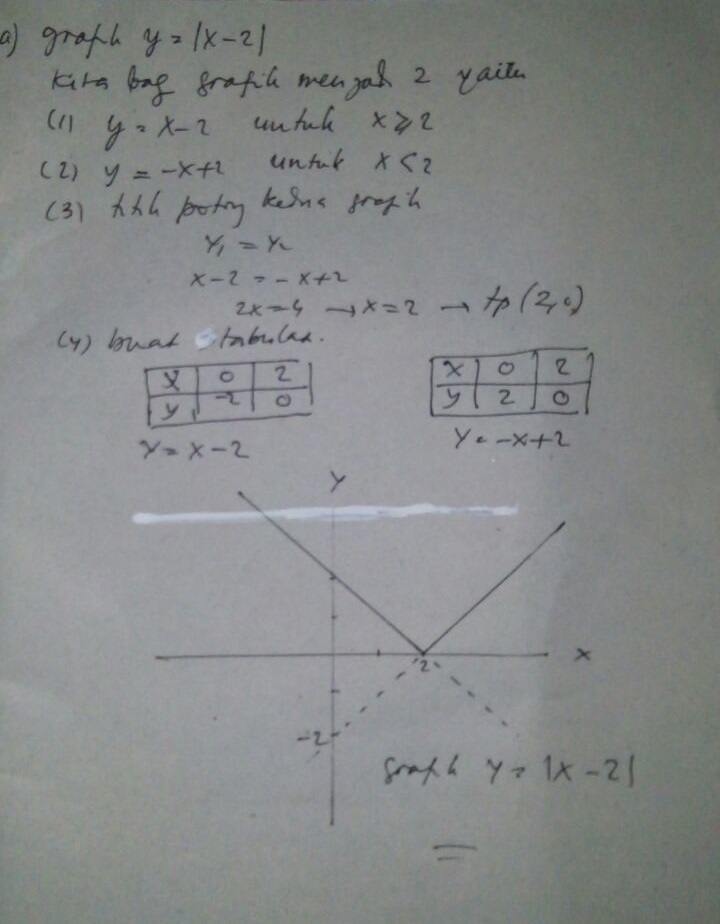 a) graph y = |x-2|
kita bag grafik menjadi 2 yaitu
(1) y = x-2 untuk x ≥ 2
(2) y = -x+2 untuk x < 2
(3) titik potong kedua grafik
Y₁ = Y₂
x-2 = -x+2
2x=4 → x=2 → tp (2,0)
(4) buat tabulas.
x 0 2
y -2 0
y = x-2
x 0 2
y 2 0
y = -x+2
Y
X
2
-2
graph y = |x-2|